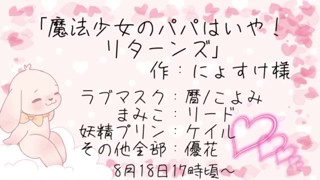 「魔法少女のパパはいや！
リターンズ」
作：にょすけ様
ラブマスク：暦/こよみ
まみこ：リード
妖精プリン：ケイル
その他全部：優花
8月18日17時頃～